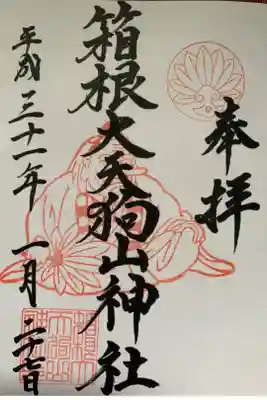 奉拝
箱根大天狗山神社
平成三十一年一月二十七日